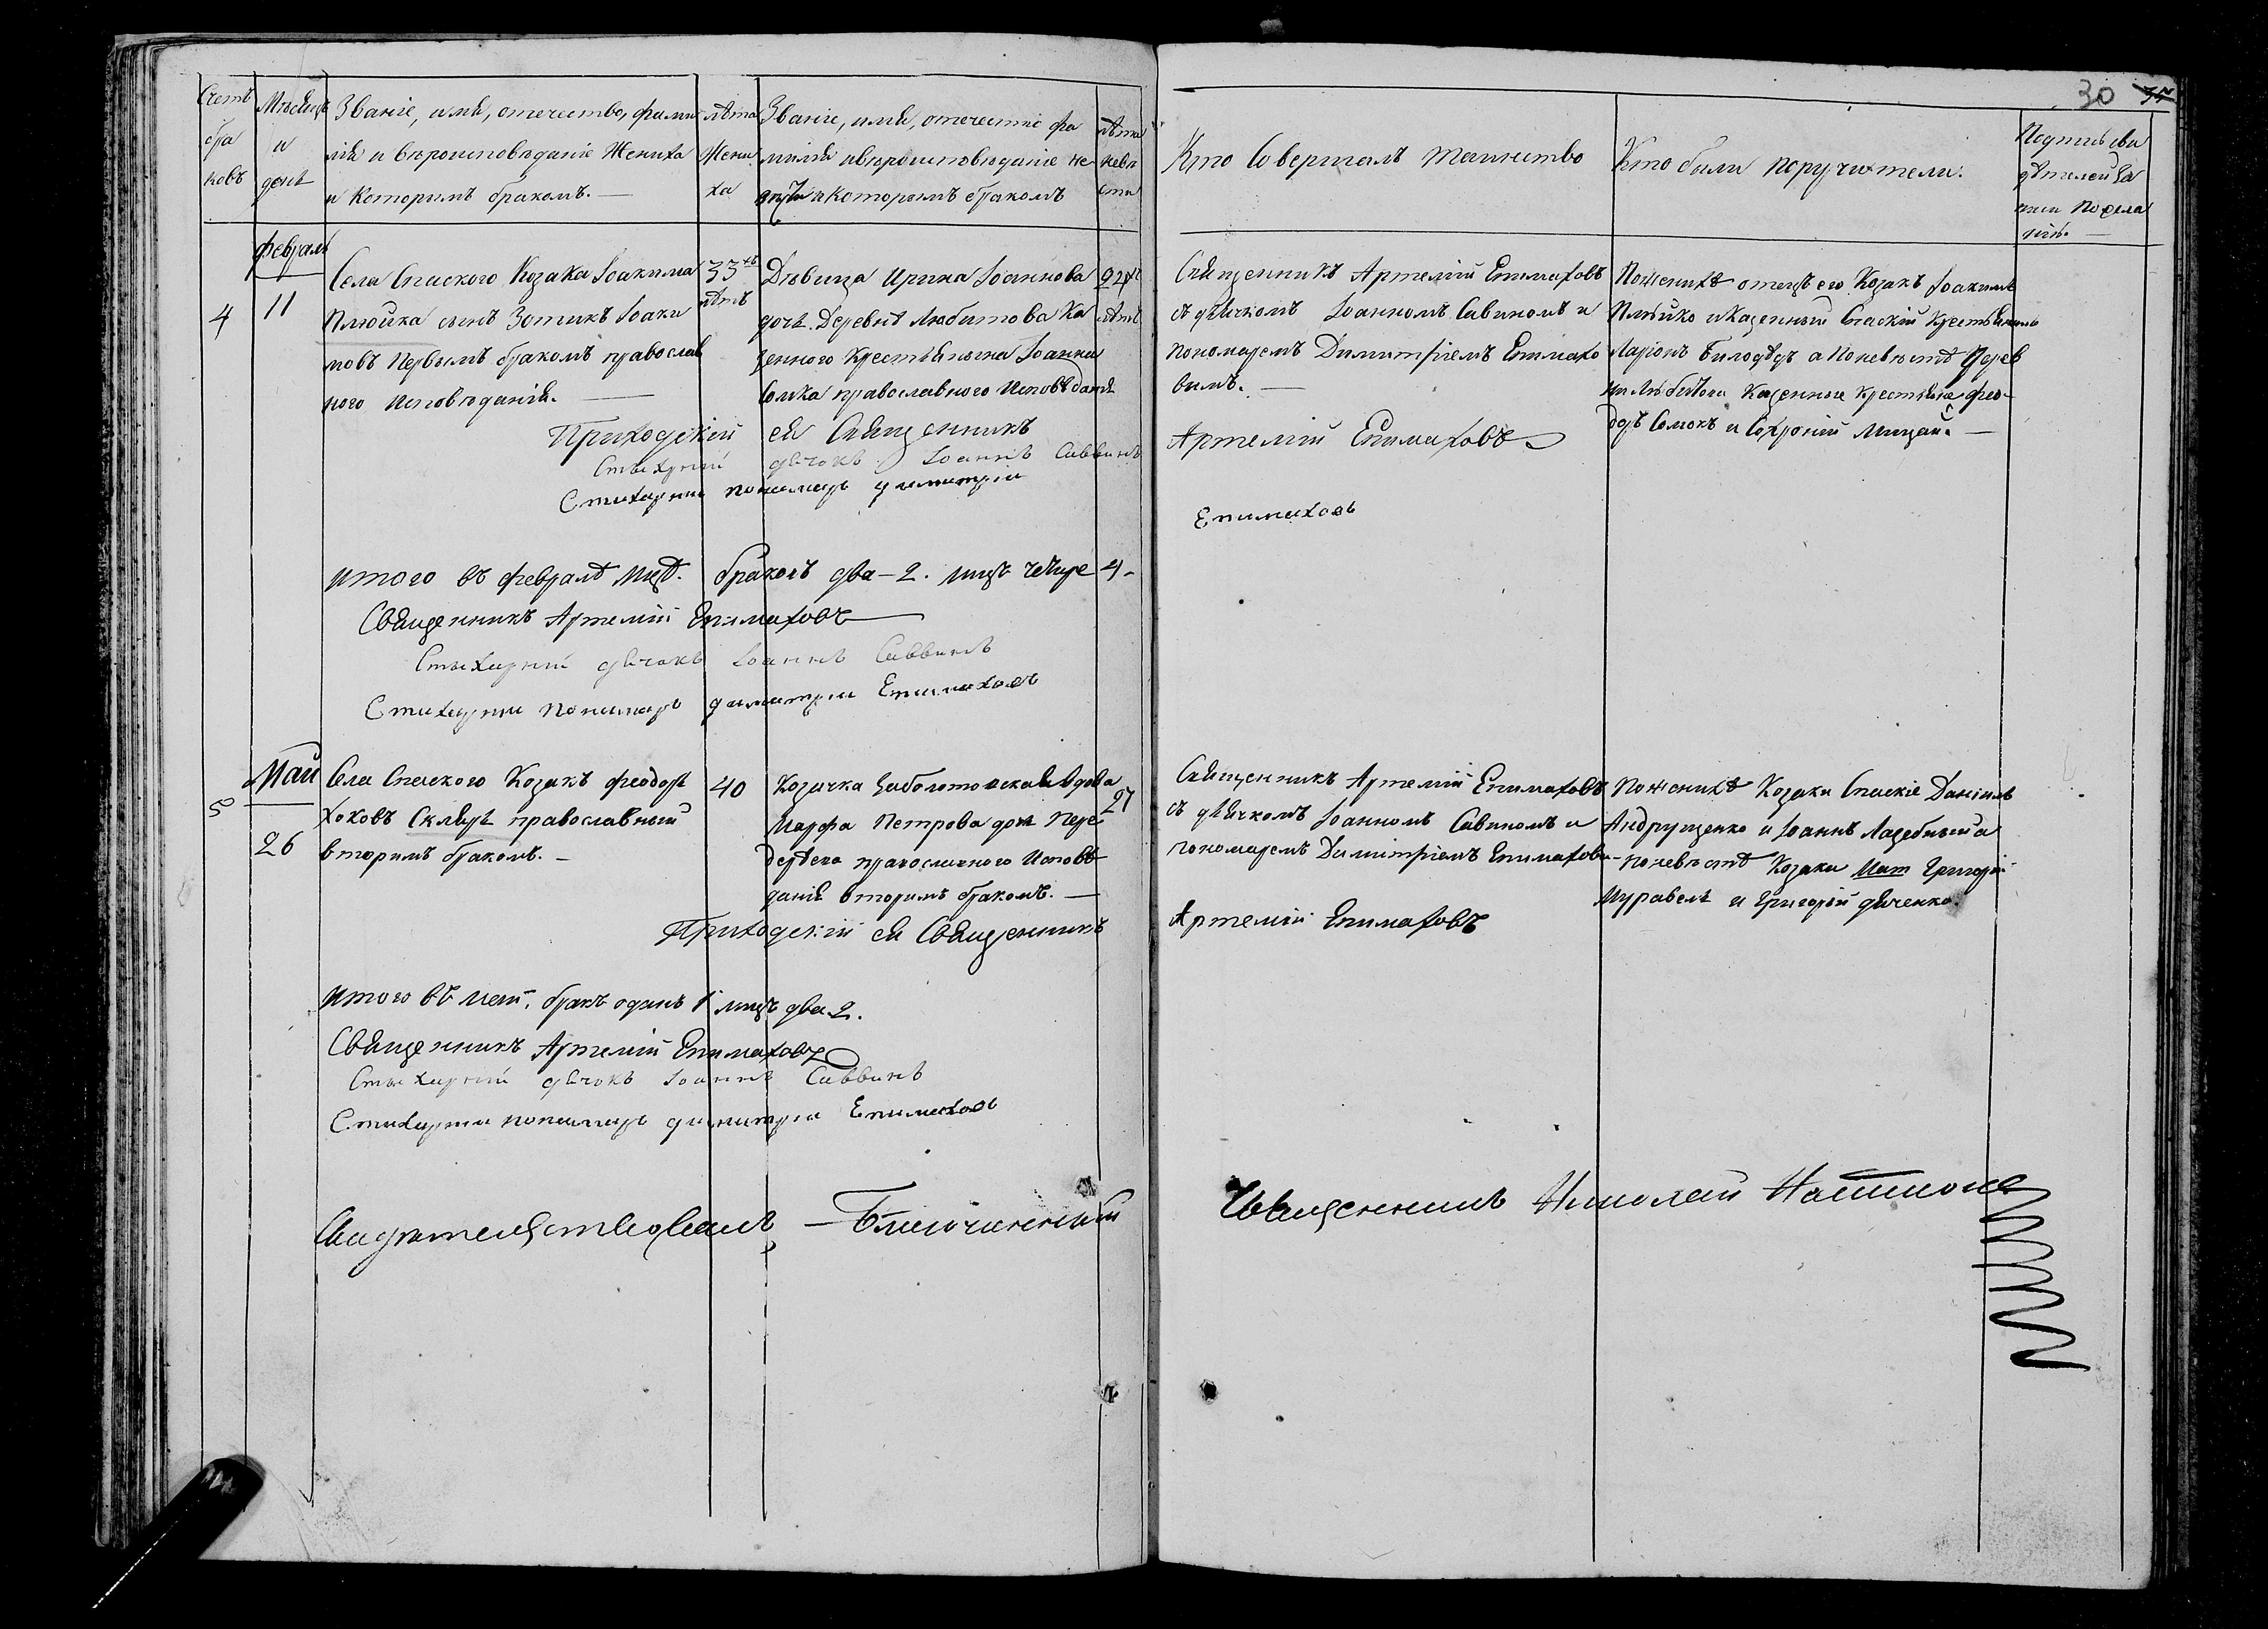 30
Счетъ
бра
ковъ
Мѣсяцъ
и
день
Званіе, имя, отечество, фами
лія и вѣроисповѣданіе Жениха
и Которымъ бракомъ. —
лѣта
Жени
ха
Званіе, имя, отечествіе фа
милія и вѣроисповѣданіе не
и которымъ бракомъ
лѣта
невѣ
сти
Кто Совершалъ таинство
Кто были поручители.
Подписи сви
дѣтелей за
писи по жела
нію. —
февраль
4
11
Села Спаского Козака Іоакима
Плюйка сынъ Зотикъ Іоаки
мовъ первымъ бракомъ православ
ного исповѣданія. —
33
лѣтъ
Дѣвица Ирина Іоаннова
дочь Деревнѣ Любитова Ка
зенного Крестьянина Іоанна
Сомка православного Исповѣданія
лѣтъ
Священникъ Артемій Епимаховъ
съ дьячкомъ Іоанномъ Савиномъ и
пономаремъ Димитріемъ Епимахо
вимъ. —
По женихѣ отецъ его Козакъ Іоакимъ
Плюйко и Казенный Спаскій Крестьянинъ
Ларіонъ Билодѣдъ а по невѣстѣ Дерев
ни Любитова Казенные Крестьяне Фео-
доръ Сомокъ и Софроній Мицай. —
Приходскій ея Священникъ Артемій Епимаховъ
Стыхарный дьячокъ Іоаннъ Саввинъ
Стихарни пономаръ димитрій Епимахов
итого въ февралѣ мцѣ. браковъ два – 2. лицъ четире 4 –
Священникъ Артемій Епимаховъ
Стыхарный дьячокъ Іоаннъ Саввинъ
Стихарни пономаръ димитрій Епимахов
Май
5
26
Села Спаского Козакъ Феодоръ
Склярь православный
вторимъ бракомъ. –
40
Козачка Заболотовская Вдова
Марфа Петрова дочь Пере
дерѣева православного Исповѣ
данія вторимъ бракомъ. —
27
Священникъ Артемій Епимаховъ
съ дьячкомъ Іоанномъ Савиномъ и
пономаремъ Димитріемъ Епимахови-
По женихѣ Козаки Спаскіе Даніилъ
Андрущенко и Іоаннъ Лазебный а
по невѣстѣ Козаки Григорій
Муравель и Григорій дяченко.
Приходскій ея Священникъ Артемій Епимаховъ
итого въ маѣ, бракъ одинъ 1 лицъ два 2.
Священникъ Артемій Епимаховъ
Стыхарный дьячокъ Іоаннъ Саввинъ
Стихарни пономаръ димитрій Епимахов
Свидѣтельствовалъ – Благочинный Священникъ Николай